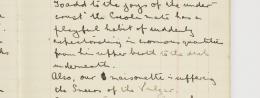 To add to the joys of the under-
crust the Cabin mate has a
playful habit of suddenly
expectorating in enormous quantities
from his upper berth to the deck
underneath.
Also, our marionette is suffering
the Sneers of the Vulgar.